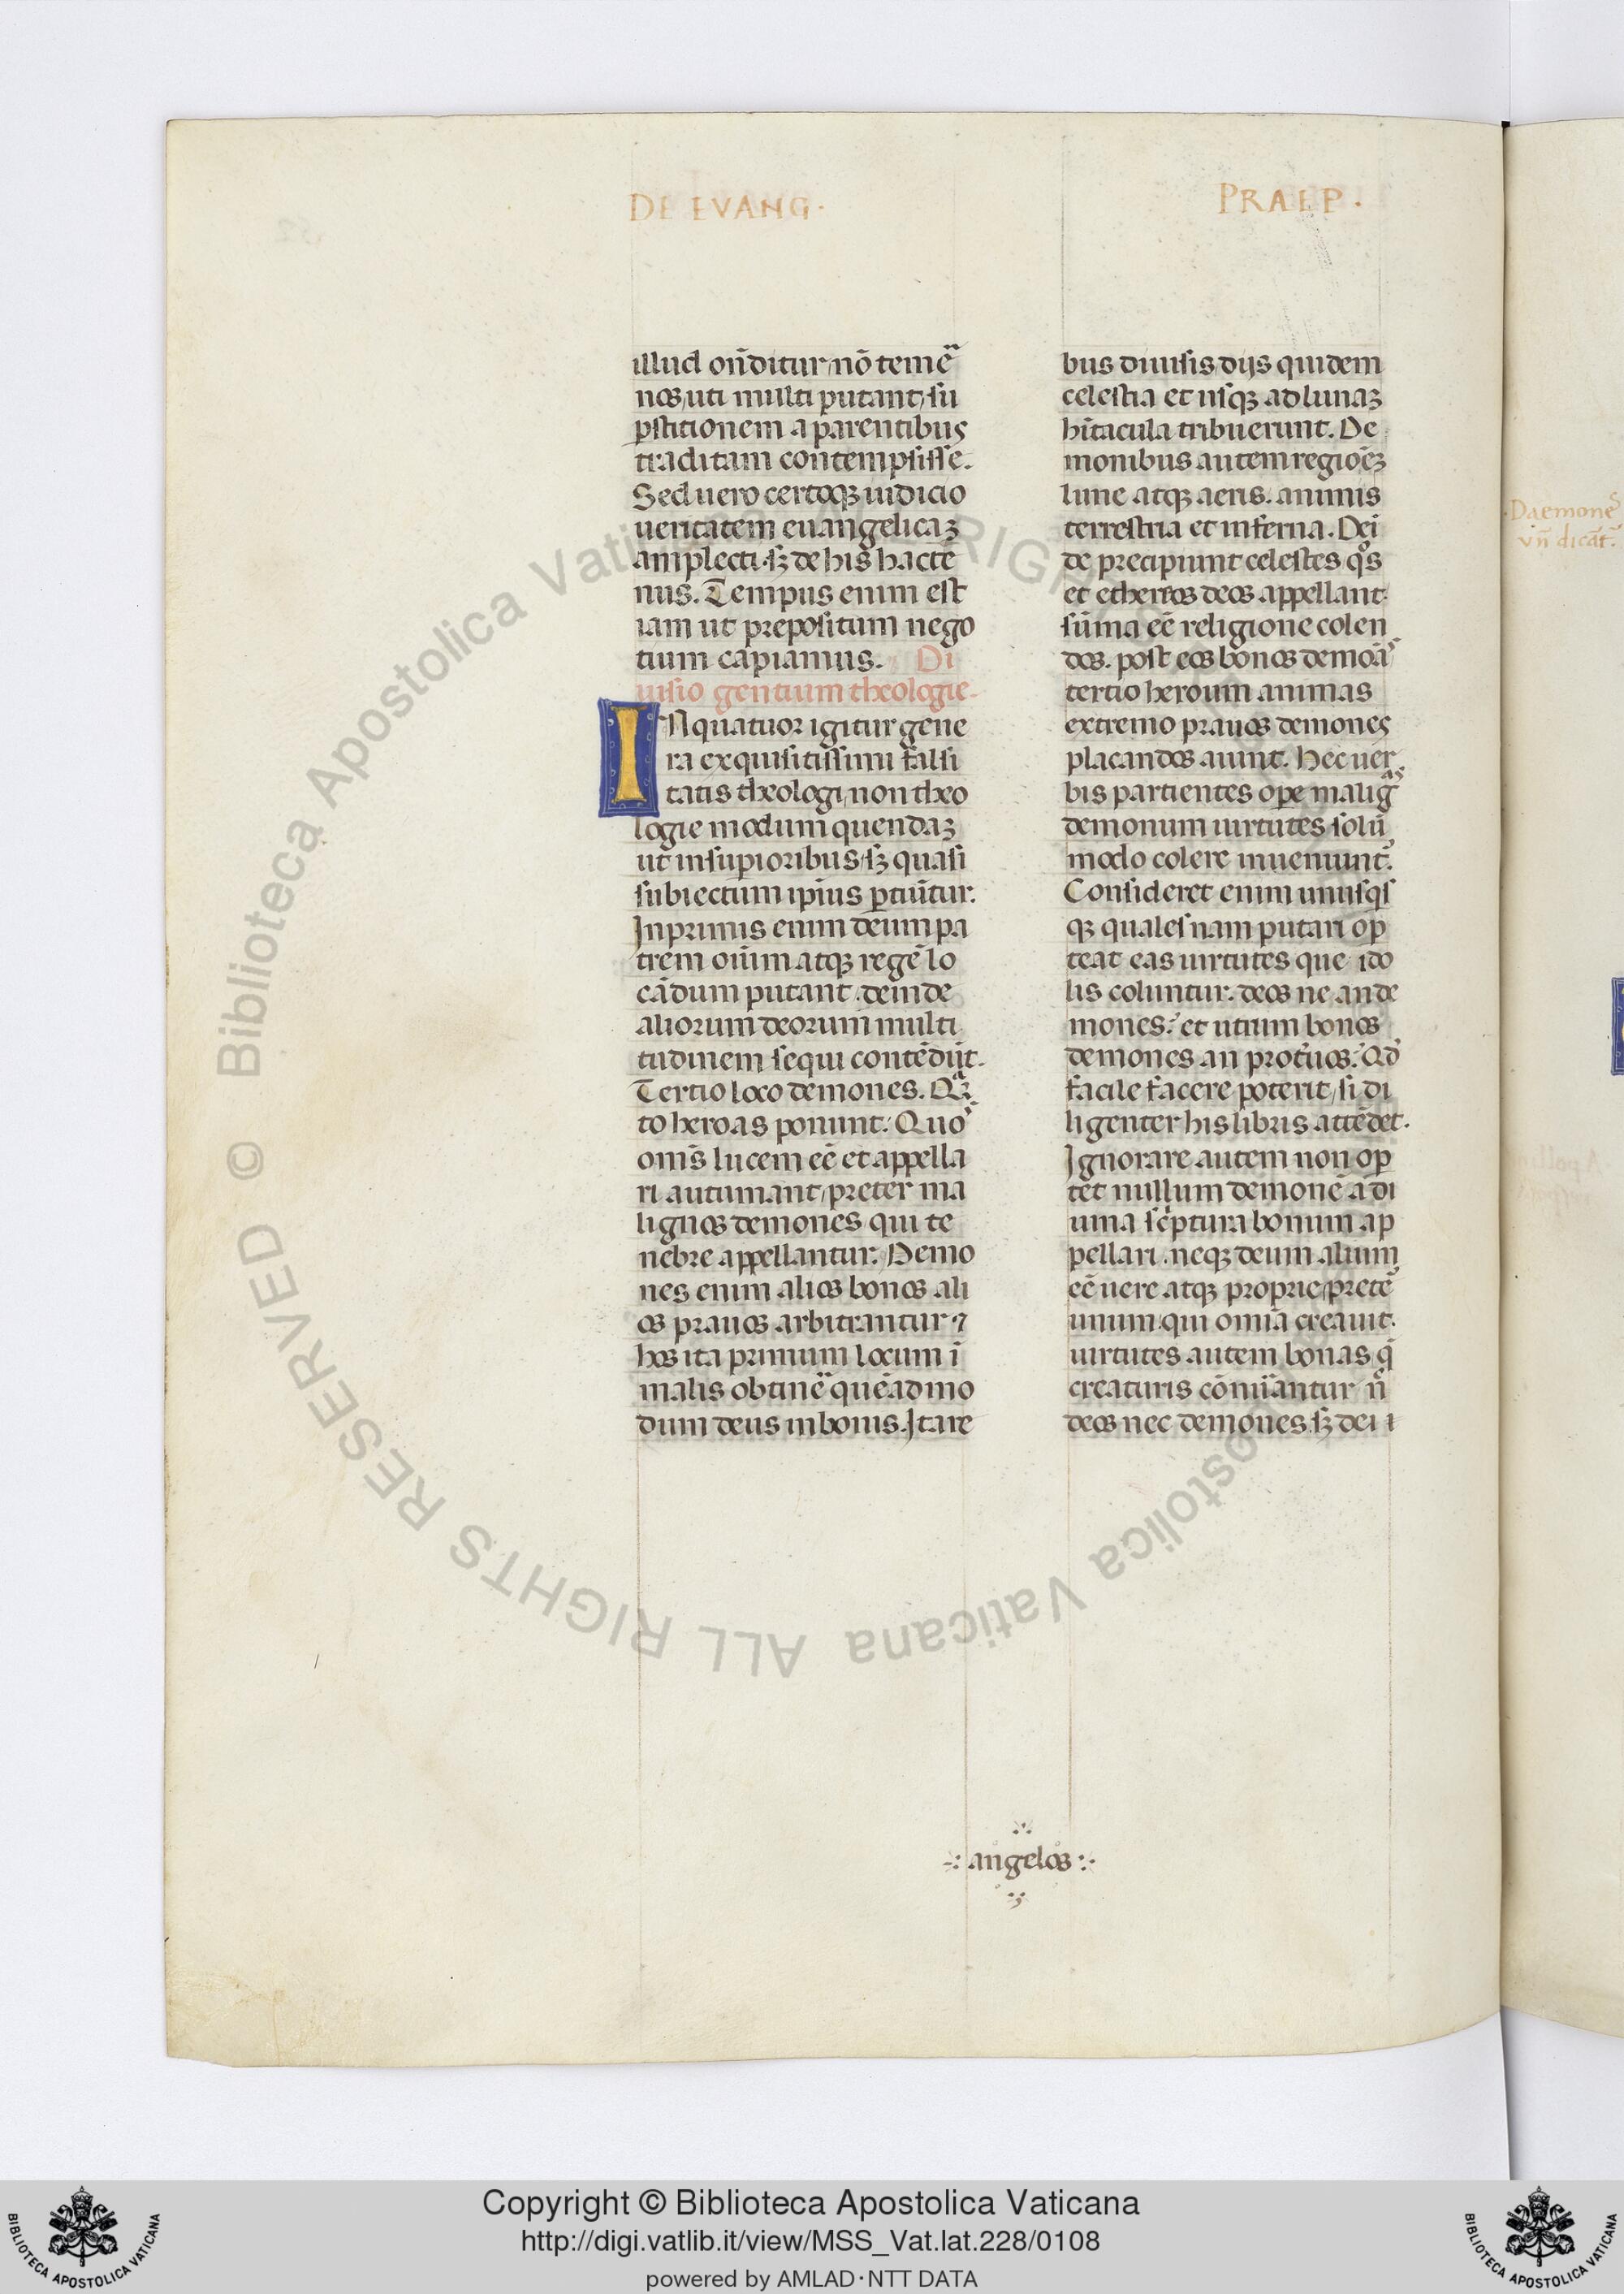 DE EVANG·
PRAEP·
illud on̄ditur nō temē
nos, uti multi putant, su
ꝑstitionem a parentibus
traditam contempsisse.
Sed uero certoqꝫ iudicio
ueritatem euangelicaꝫ
amplecti. sꝫ de his hacte
nus. Tempus enim est
iam ut prepositum nego
tium capiamus. Di
uisio gentium theologie.
IN quatuor igitur gene
ra exquisitissimi falsi
tatis theologi, non theo
logie modum quendaꝫ
ut in supioribus, sꝫ quasi
subiectum ipius ꝑtiūtur.
Inprimis enim deum pa
trem oium atqꝫ regē lo
cādum putant. deinde
aliorum deorum multi
tudinem sequi contēdūt.
Tertio loco demones. Qᵃr
to heroas ponunt. Quoꝝ
omīs lucem eē et appella
ri autumant, preter ma
lignos demones qui te
nebre appellantur. Demo
nes enim alios bonos ali
os prauos arbitrantur. ⁊
hos ita primum locum ī
malis obtinē quēadmo
dum deus in bonis. Itare
bus diuisis dijs quidem
celestia et usqꝫ ad lunaꝫ
hītacula tribuerunt. De
monibus autem regiōeꝫ
lune atqꝫ aeris. animis
terrestria et inferna. Dei
de precipiunt celestes qͦs
et ethereos deos appellant
sūma eē religione colen
dos. post eos bonos demōa
tertio heroum animas
extremo prauos demones
placandos aiunt. Hec uer
bis partientes ope maligᵃs
demonum uirtutes solū
modo colere inueniunt̉.
Consideret enim unusqs
qꝫ quales nam putari op
teat eas uirtutes que ido
lis coluntur. deos ne an de
mones. et utrum bonos
demones an proteruos. Qd̉
facile facere poterit, si di
ligenter his libris attēdet.
Ignorare autem non op
tet nullum demonē a di
uina sc̄ptura bonum ap
pellari. neqꝫ deum alium
eē uere atqꝫ proprie, prete᷒
unum qui omīa creauit.
uirtutes autem bonas q̄
creaturis cōmūantur n̄
deos nec demones sꝫ dei ı
angelos
Daemones
un̄ dicāt̉.
Copyright © Biblioteca Apostolica Vaticana
http://digi.vatlib.it/view/MSS_Vat.lat.228/0108
powered by AMLAD·NTT DATA
BIBLIOTECA APOSTOLICA VATICANA
BIBLIOTECA APOSTOLICA VATICANA
© Biblioteca Apostolica Vaticana ALL RIGHTS RESERVED